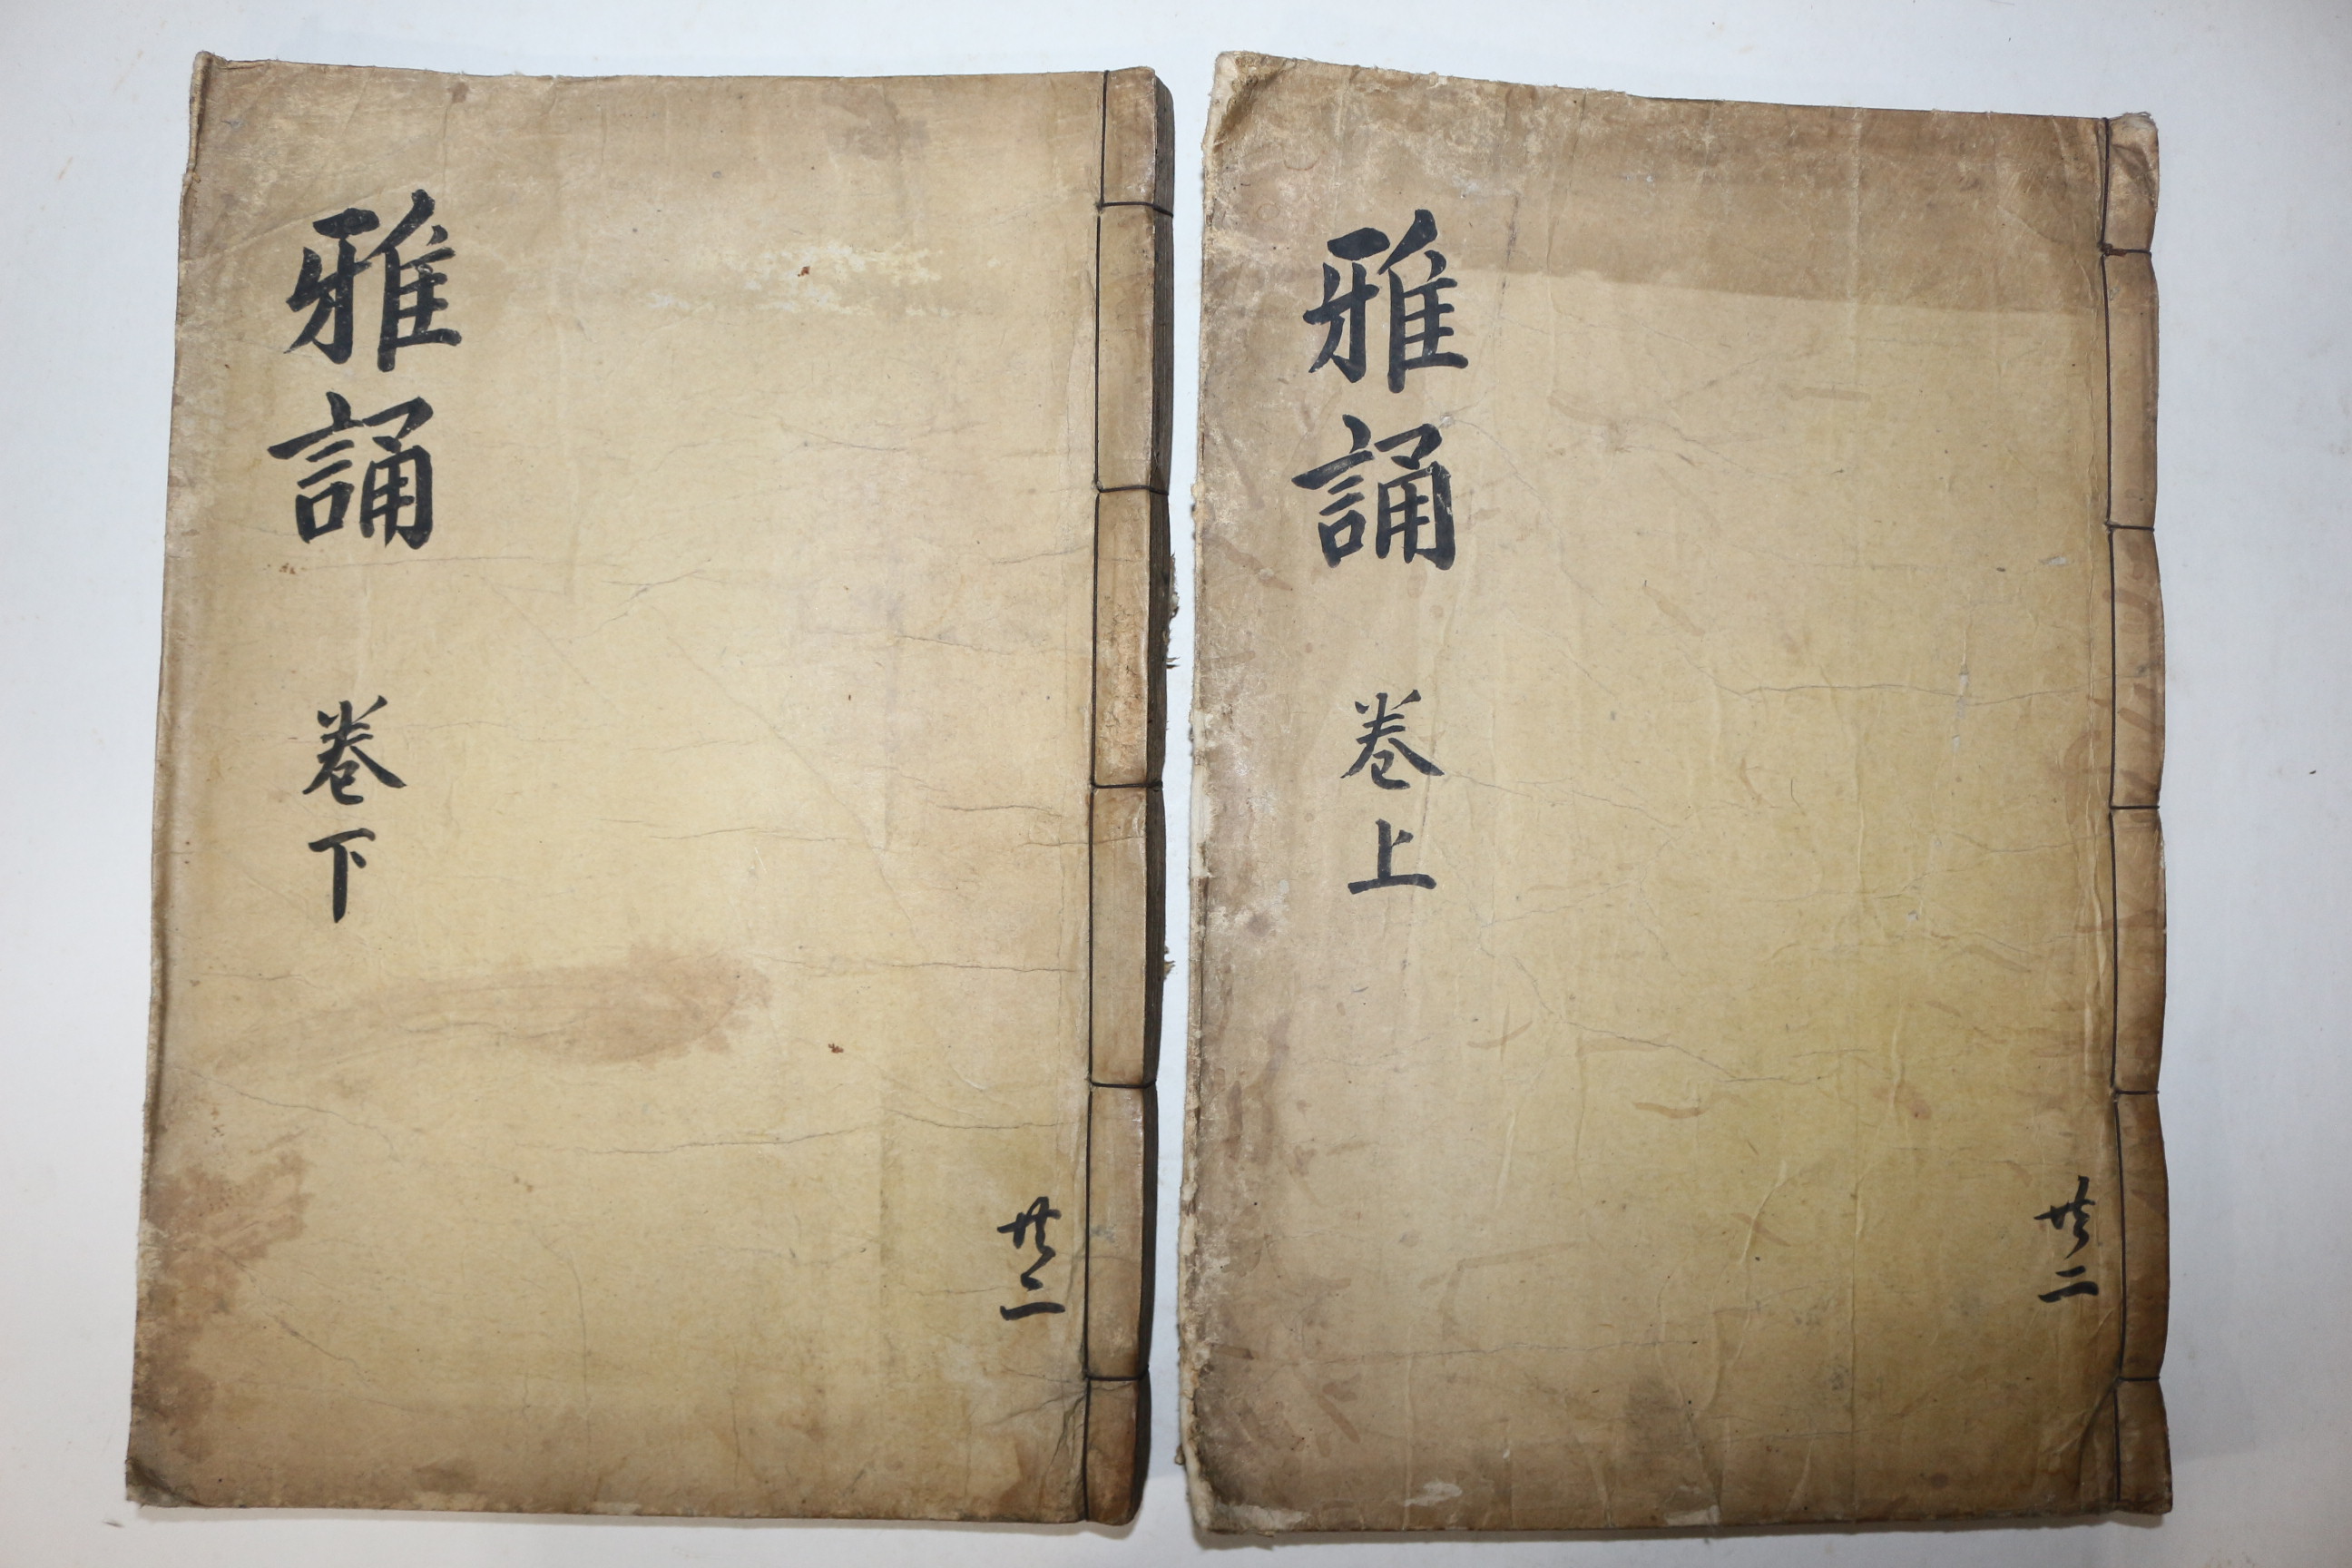 雅誦
卷上
共二
雅誦
卷下
共二